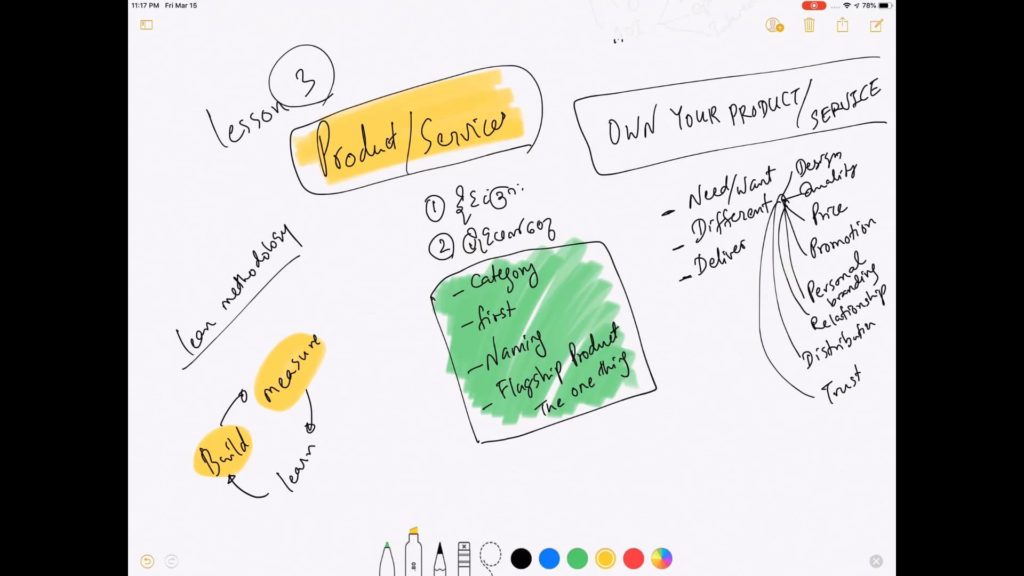 11:17 PM Fri Mar 15
78%
lesson 3
Product/Services
OWN YOUR PRODUCT/
SERVICE
1
2
- Category
- first
- Naming
- Flagship Product
The one thing
- Need/Want
- Different
- Deliver
Design
Quality
Price
Promotion
Personal
branding
Relationship
Distribution
Trust
lean methodology
measure
Build
learn